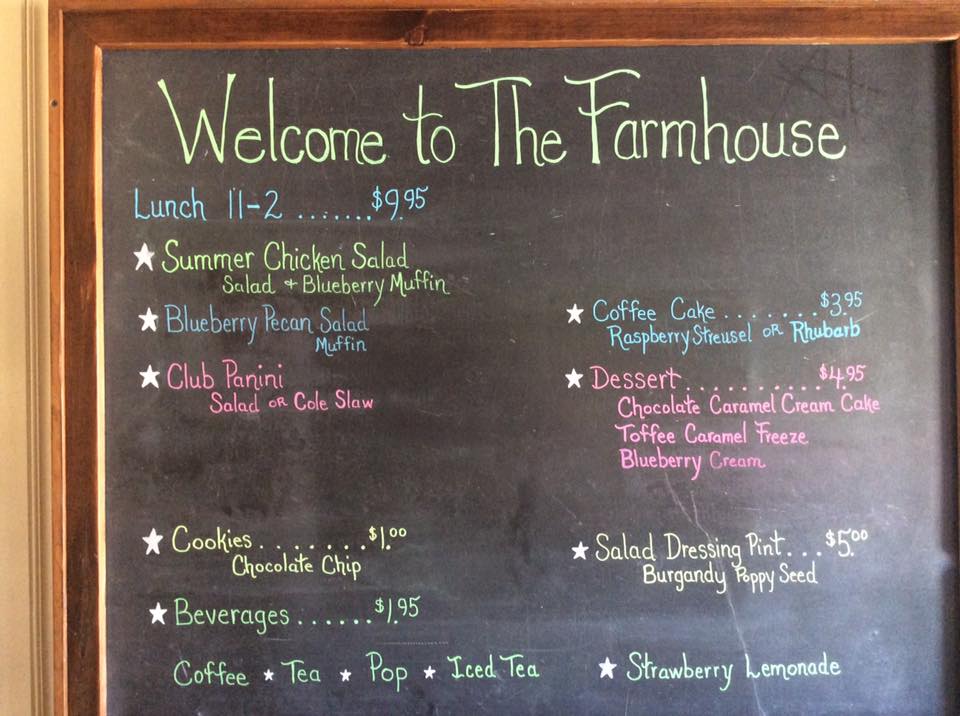 Welcome to The Farmhouse
Lunch 11-2 .......$9.95
★ Summer Chicken Salad
Salad + Blueberry Muffin
★ Blueberry Pecan Salad
Muffin
★ Club Panini
Salad or Cole Slaw
★ Coffee Cake ........$3.95
Raspberry Streusel or Rhubarb
★ Dessert..........$4.95
Chocolate Caramel Cream Cake
Toffee Caramel Freeze
Blueberry Cream
★ Cookies.......$1.00
Chocolate Chip
★ Salad Dressing Pint...$5.00
Burgandy Poppy Seed
★ Beverages......$1.95
Coffee ★ Tea ★ Pop ★ Iced Tea ★ Strawberry Lemonade